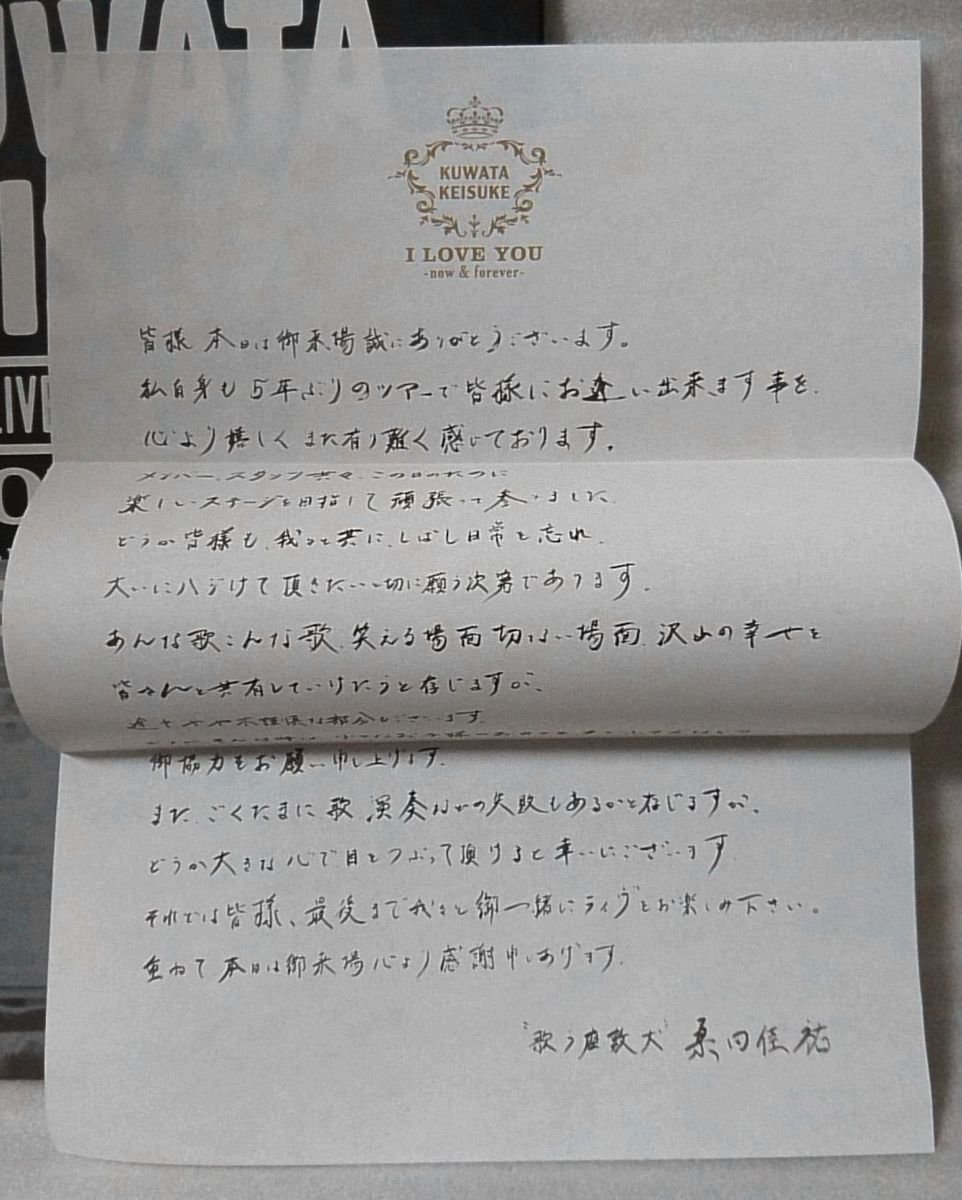 UWATA
LIVE
KUWATA
KEISUKE
I LOVE YOU
-now & forever-
皆様 本日は御来場誠にありがとうございます。
私自身も5年ぶりのツアーで皆様にお逢い出来ます事を、
心より嬉しくまた有り難く感じております。
メンバー、スタッフ共々、この日のために
楽しいステージを目指して頑張って参りました。
どうか皆様も、我々と共に、しばし日常を忘れ、
大いにハジけて頂きたい、切に願う次第であります。
あんな歌こんな歌、笑える場面切ない場面、沢山の幸せを
皆さんと共有していけたらと存じますが、
御協力をお願い申し上げます。
また、ごくたまに歌、演奏などの失敗もあるかと存じますが、
どうか大きな心で目をつぶって頂けると幸いにございます。
それでは皆様、最後まで我々と御一緒にライヴをお楽しみ下さい。
重ねて本日は御来場心より感謝申しあげます。
"歌う座敷犬" 桑田佳祐